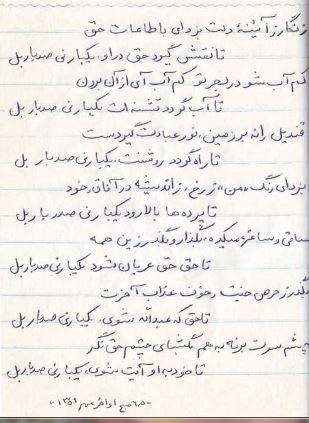 زنگار ز آئینهٔ دلت بزدای با طاعات حق
تا نقشش گیرد حق در او، یکبار نی صدبار بل
کم آب شو در بحر تو کم آب آی از آن برون
تا آب گردد تشنه ات یکبار نی صدبار بل
قندیل راه بر زمین، نور عبادت گیر دست
تا راه گردد روشنت، یکبار نی صدبار بل
بزدای رنگ «من» ز رخ، ز اندیشه در آفاق خود
تا پرده ها بالا رود یکبار نی صدبار بل
ساقی و ساغر میکده، بگذار و بگذر زین همه
تا حق حق عریان شود یکبار نی صدبار بل
بگذر ز حرص جنت و خوف عذاب آخرت
تا حق که عبدالله شوی، یکبار نی صدبار بل
چشم سرت برنه به هم بگشای چشم حق نگر
تا خود به او آیت شوی، یکبار نی صدبار بل
صبح اواخر مهر ۱۳۵۹